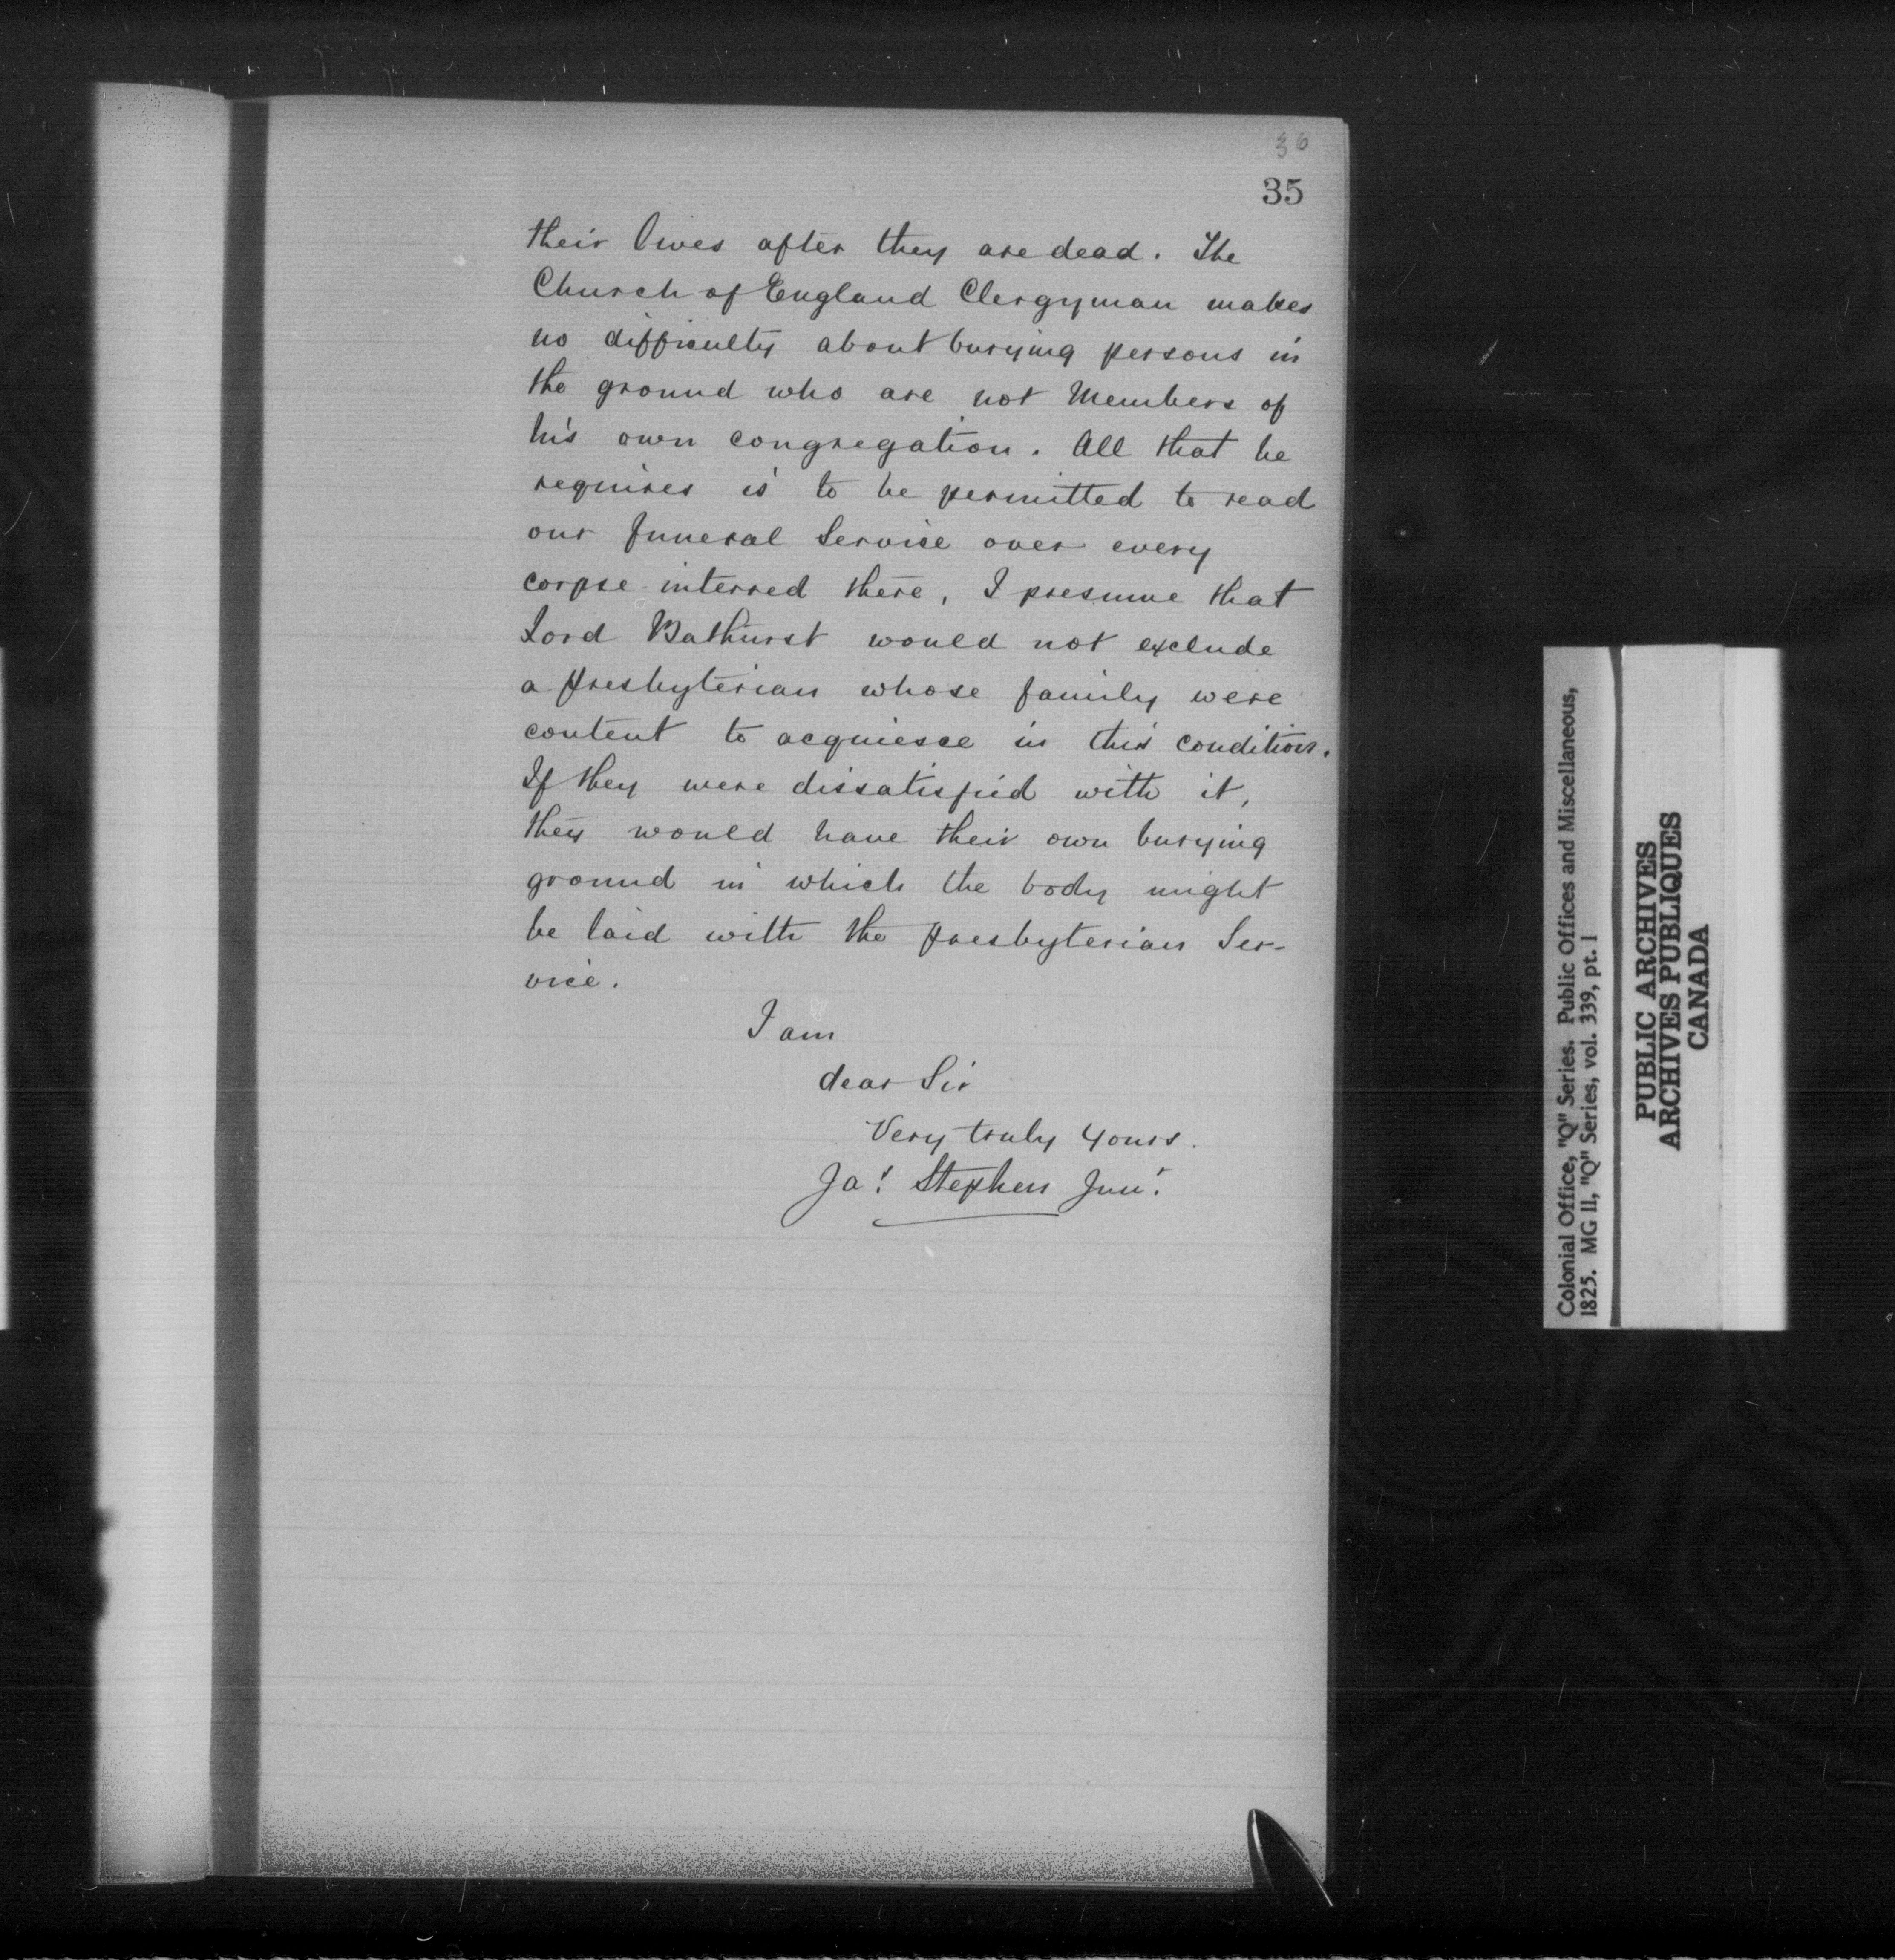 36
35
their lives after they are dead. The
Church of England Clergyman makes
no difficulty about burying persons in
the ground who are not Members of
his own congregation. All that he
requires is to be permitted to read
our funeral Service over every
corpse interred there, I presume that
Lord Bathurst would not exclude
a presbyterian whose family were
content to acquiesce in this condition.
If they were dissatisfied with it,
they would have their own burying
ground in which the body might
be laid with the presbyterian Ser-
vice.
I am
dear Sir
Very truly yours.
Jas. Stephen Junr.
Colonial Office, "Q" Series. Public Offices and Miscellaneous,
1825. MG 11, "Q" Series, vol. 339, pt. 1
PUBLIC ARCHIVES
ARCHIVES PUBLIQUES
CANADA